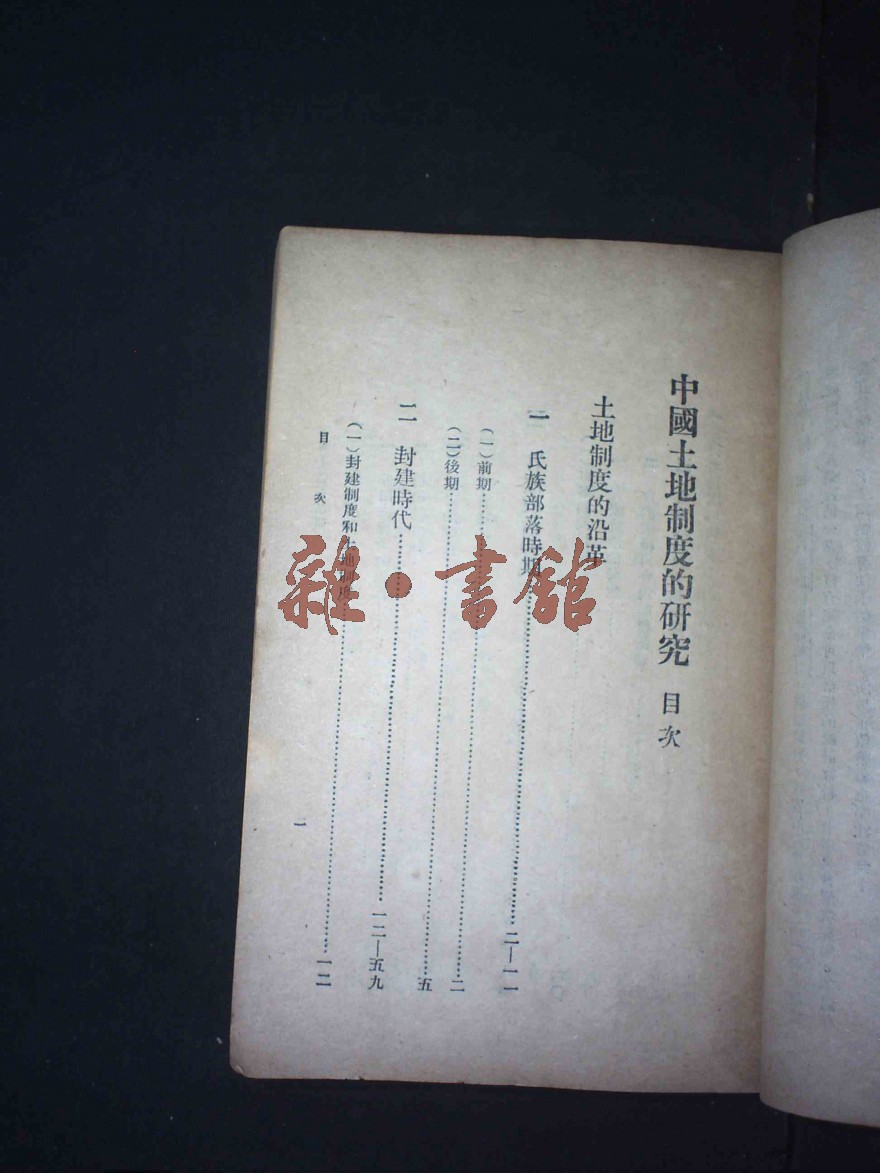 中國土地制度的研究　目次
土地制度的沿革
一　氏族部落時期……二—一一
（一）前期……二
（二）後期……五
二　封建時代……一二—五九
（一）封建制度和土地制度……一二
目次　一
雜·書館